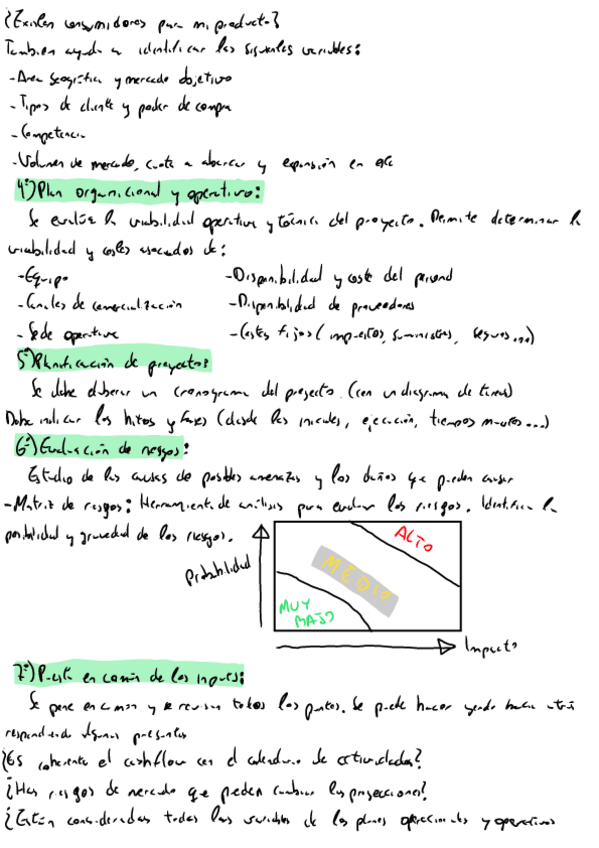 ¿Existen consumidores para mi producto?
También ayuda a identificar las siguientes variables:
-Area geográfica y mercado objetivo
-Tipos de cliente y poder de compra
-Competencia
-Volumen de mercado, cuota a abarcar y expansión en
4º) Plan organizacional y operativo:
Se evalúa la viabilidad operativa y técnica del proyecto. Permite determinar la
viabilidad y costes asociados de:
-Equipo -Disponibilidad y coste del personal
-Canales de comercialización -Disponibilidad de proveedores
-Sede operativa -Costes fijos (impuestos, suministros, seguros...)
5º) Planificación de proyectos:
Se debe elaborar un cronograma del proyecto. (con un diagrama de tareas)
Debe indicar los hitos y fases (desde las iniciales, ejecución, tiempos muertos...)
6º) Evaluación de riesgos:
Estudio de las causas de posibles amenazas y los daños que pueden causar
-Matriz de riesgos: Herramienta de análisis para evaluar los riesgos. Identifica la
posibilidad y gravedad de los riesgos.
ALTO
Probabilidad
MEDIO
MUY
BAJO
Impacto
7º) Puesta en común de los inputs:
Se pone en común y se revisan todos los puntos. Se puede hacer yendo hacia atrás
respondiendo algunas preguntas
¿Es coherente el cashflow con el calendario de actividades?
¿Hay riesgos de mercado que pueden cambiar las proyecciones?
¿Están consideradas todas las variables de los planes operacionales y operativos